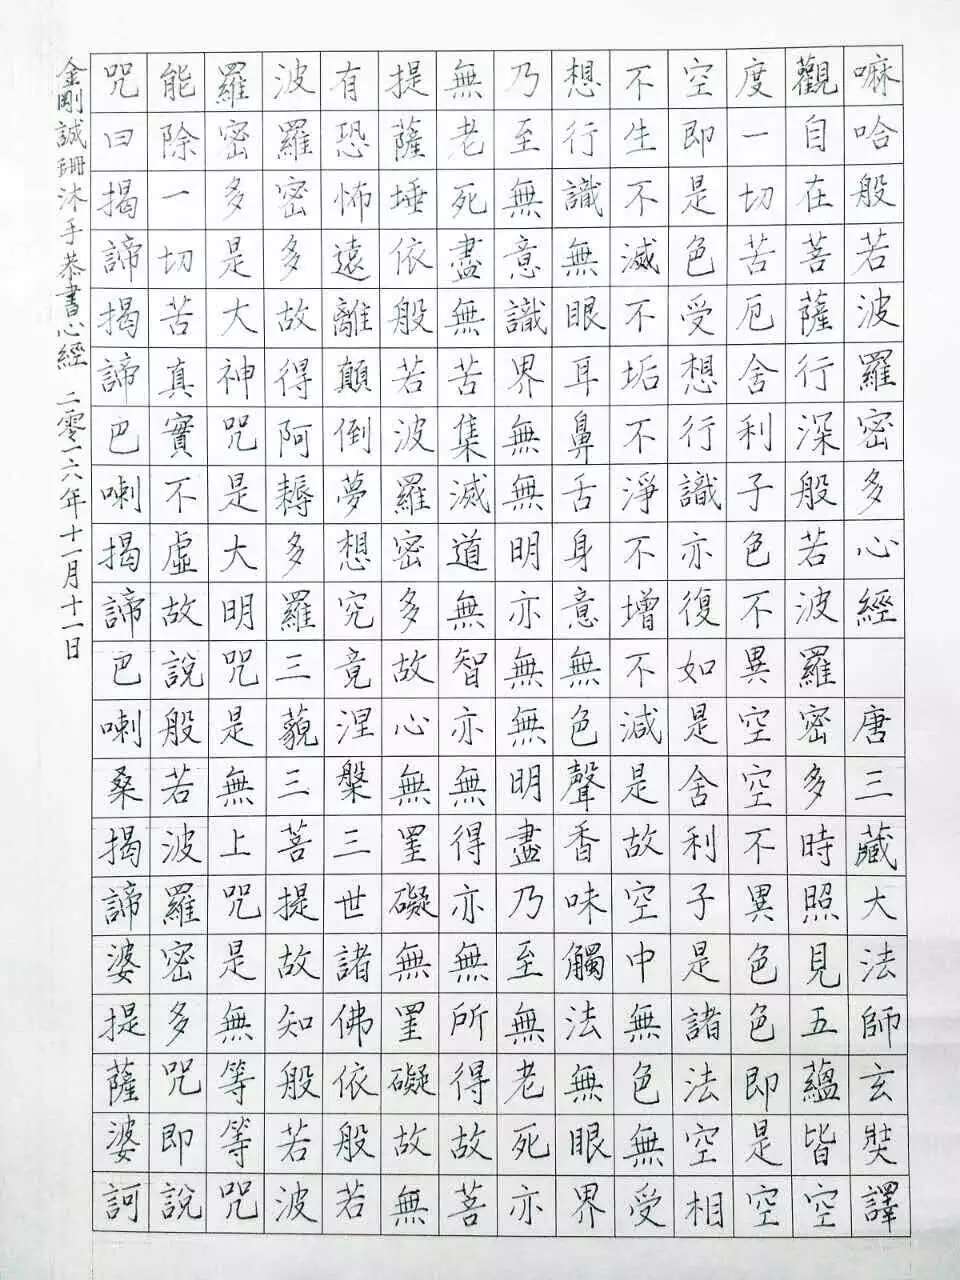 嘛哈般若波羅密多心經 唐三藏大法師玄奘譯
觀自在菩薩行深般若波羅密多時照見五蘊皆空
度一切苦厄舍利子色不異空空不異色色即是空
空即是色受想行識亦復如是舍利子是諸法空相
不生不滅不垢不淨不增不減是故空中無色無受
想行識無眼耳鼻舌身意無色聲香味觸法無眼界
乃至無意識界無無明亦無無明盡乃至無老死亦
無老死盡無苦集滅道無智亦無得亦無所得故菩
提薩埵依般若波羅密多故心無罣礙無罣礙故無
有恐怖遠離顛倒夢想究竟涅槃三世諸佛依般若
波羅密多故得阿耨多羅三藐三菩提故知般若波
羅密多是大神咒是大明咒是無上咒是無等等咒
能除一切苦真實不虛故說般若波羅密多咒即說
咒曰揭諦揭諦巴喇揭諦巴喇桑揭諦婆提薩婆訶
金剛誠珊沐手恭書心經 二零一六年十一月十一日